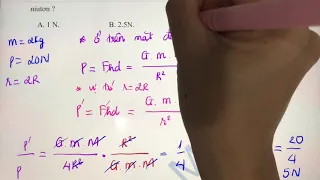 niutơn ?
A. 1 N. B. 2.5N.
m = 2kg
P = 20N
r = 2R
* Ở trên mặt đ
P = Fhd = G. m. / R²
* vị trí r = 2R
P' = Fhd = G. m. / r²
P' / P = G. m. M / 4R² . R² / G. m. M = 1 / 4
= 20 / 4
5N